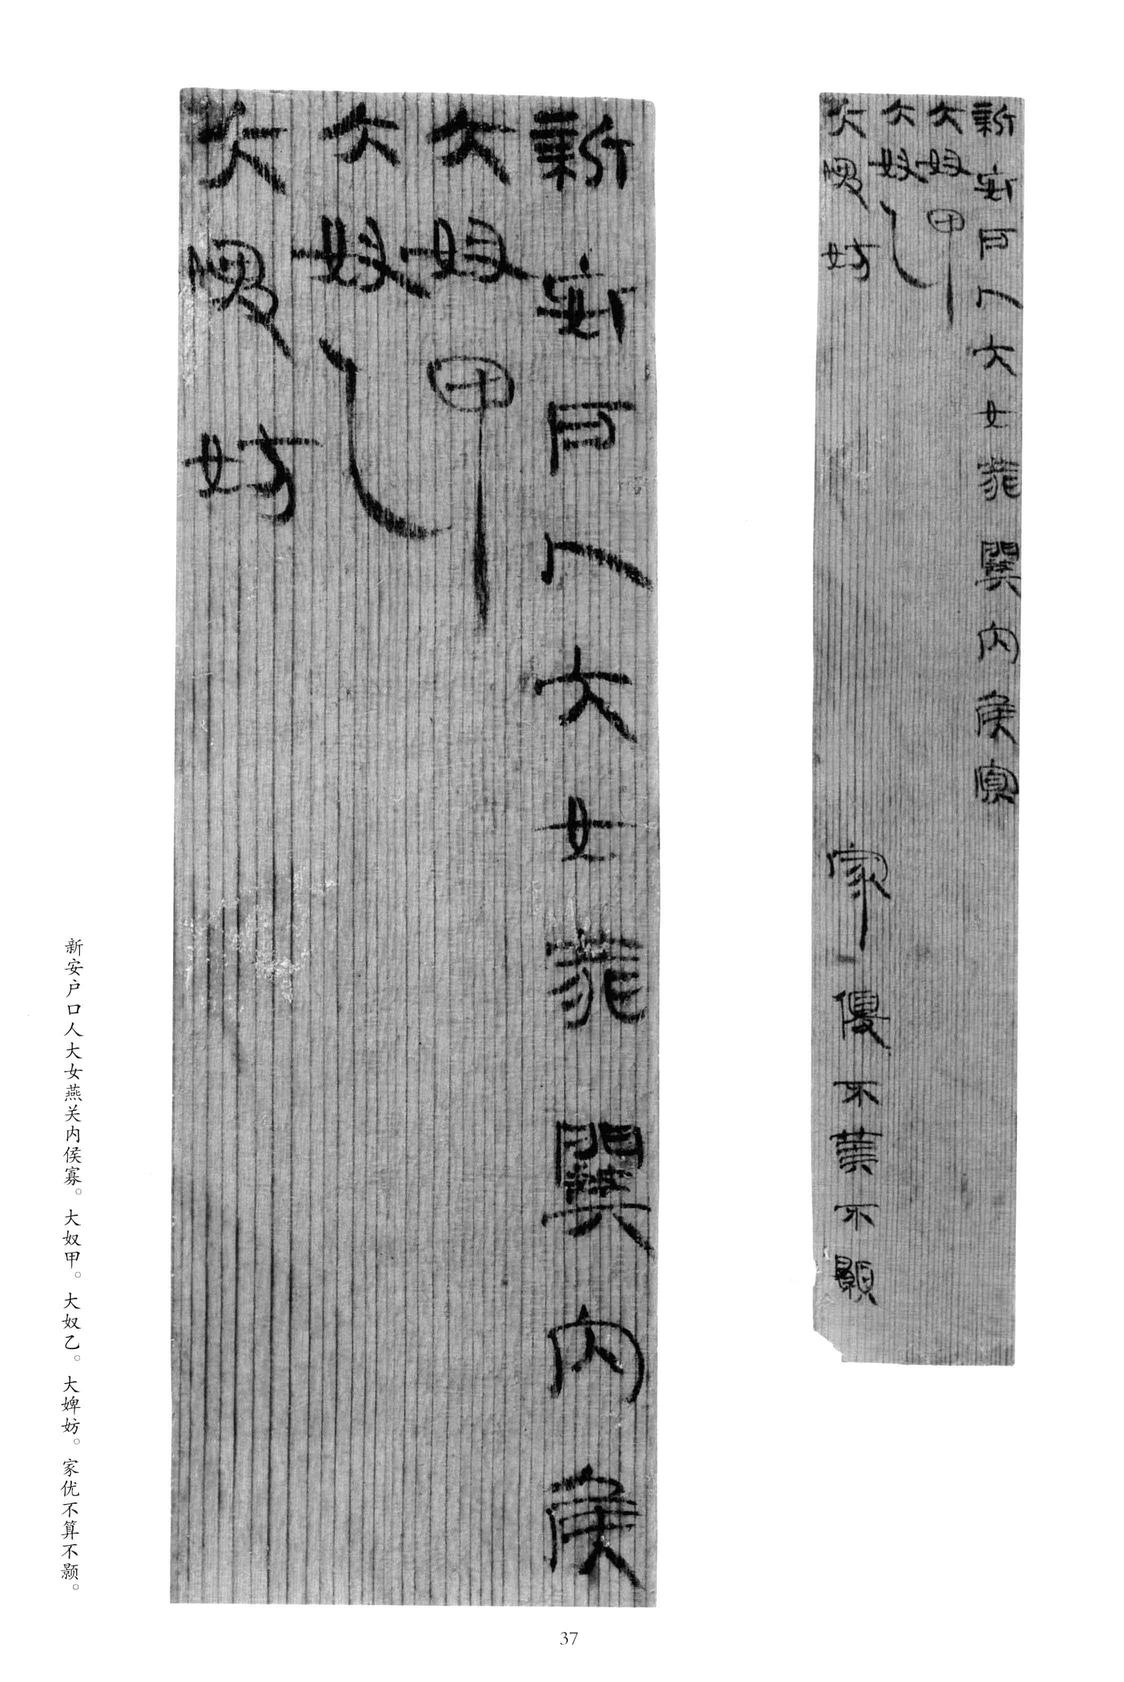 新安戶人大女燕關內侯寡
大奴甲
大奴乙
大婢妨
家優不算不顥
新安戶人大女燕關內侯
大奴甲
大奴乙
大婢妨
新安户口人大女燕关内侯寡。大奴甲。大奴乙。大婢妨。家优不算不颢。
37